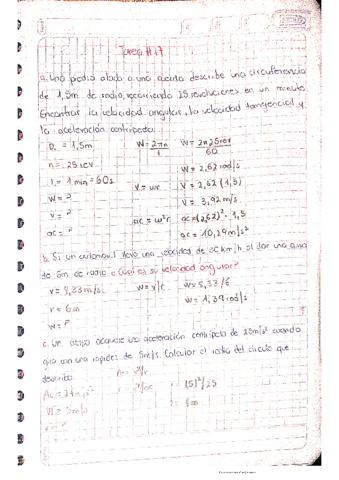 Tarea #17
a. Una piedra atada a una cuerda describe una circuferencia
de 1,5m de radio, recorriendo 25 revoluciones en un minuto.
Encontrar la velocidad angular, la velocidad tangencial y
la aceleración centripeta.
= 1,5m W= 2πn W= 2π25rev
n = 25 rev 60
t = 1 min = 60s W = 2,62 rad/s
W = ? V = wr V = 2,62 (1,5)
V = ? V = 3,92 m/s
ac = ? ac = w²r ac = (2,62)² · 1,5
ac = 10,29 m/s²
b. Si un automovil lleva una velocidad de km/h al dar una
de 5m de radio ¿Cual es su velocidad angular?
v = 8,33 m/s w = v/r w = 8,33/6
r = 6m w = 1,39 rad/s
w = ?
c. Un adquiere una aceleración centripeta de 25m/s² cuando
gira con una rapidez de 5m/s. Calcular el radio del circulo que
describe.
(5)²/25